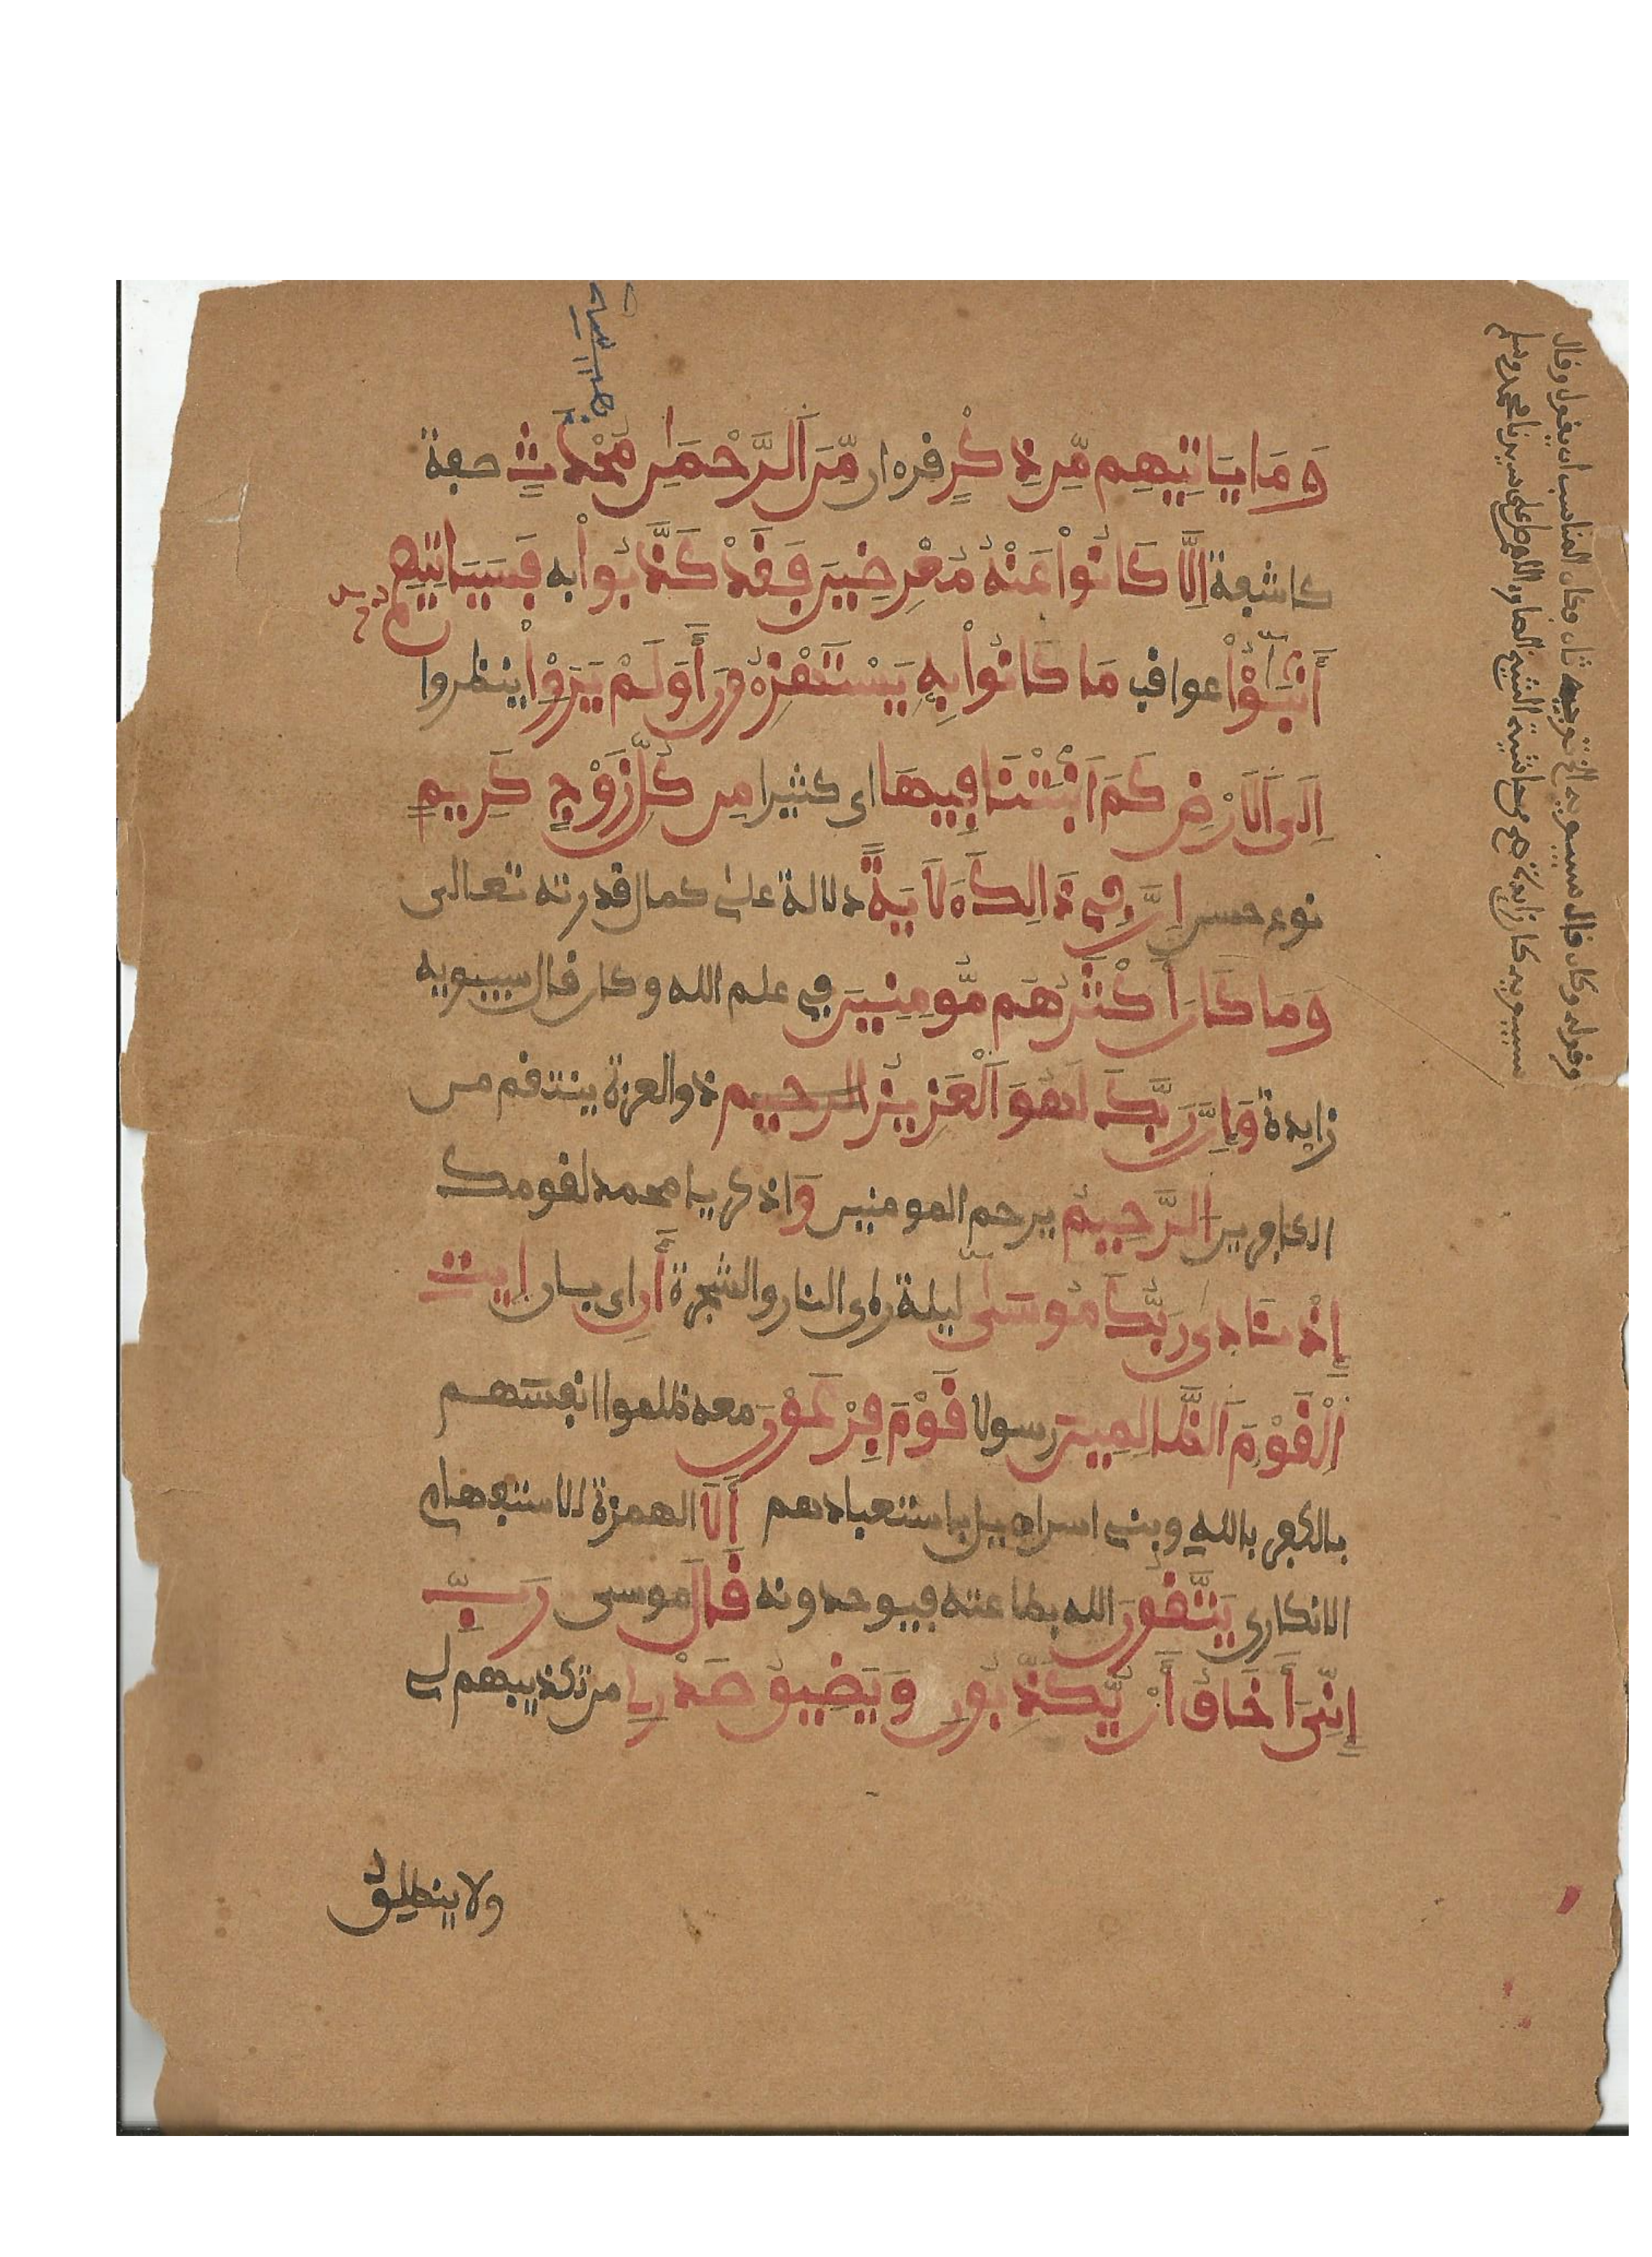 وَمَا يَاتِيهِم مِّن ذِكْرٍ قرءان مِّنَ اَلرَّحْمَٰنِ مُحْدَثٍ صفة
كاشفة اِلَّا كَانُواْ عَنْهُ مُعْرِضِينَ فَقَدْ كَذَّبُواْ به فَسَيَاتِيهِمُ
أَنۢبَٰٓؤُاْ عواقب مَا كَانُواْ بِهِ يَسْتَهْزِءُونَ أَوَلَمْ يَرَوِاْ ينظروا
اِلَى اَلَارْضِ كَمَ اَنۢبَتْنَا فِيهَا اى كثيرا مِن كُلِّ زَوْجٍ كَرِيمٍ
نوع حسن إِنَّ فِي ذَالِكَ ءَلَايَةً دلالة على كمال قدرته تعالى
وَمَا كَانَ أَكْثَرُهُم مُّومِنِينَ في علم الله وكان قال سيبويه
زايدة وَإِنَّ رَبَّكَ لَهُوَ اَلْعَزِيزُ الرحيم ذو العزة ينتقم من
الكافرين اَلرَّحِيمُ يرحم المومنين وَاذكر يا محمد لقومك
إِذْ نَادَىٰ رَبُّكَ مُوسَىٰ ليلة راى النار والشجرة أَنِ اى بان ايتِ
اِلْقَوْمَ اَلظَّالِمِينَ رسولا قَوْمَ فِرْعَوْنَ معه ظلموا انفسهم
بالكفر بالله وبنى اسراءيل باستعبادهم أَلَا الهمزة للاستفهام
الانكارى يَتَّقُونَ الله بطاعته فيوحدونه قَالَ موسى رَبِّ
إِنِّيَ أَخَافُ أَنْ يُّكَذِّبُونِ وَيَضِيقُ صَدْرِي من تكذيبهم لى
ولا ينطلق
وقوله وكان قال سيبويه الخ توجيه ثان وكان المناسب ان يقول وقال
سيبويه كان زايدة من حاشية الشيخ الصاوى اللهم صل على سيدنا محمد وسلم